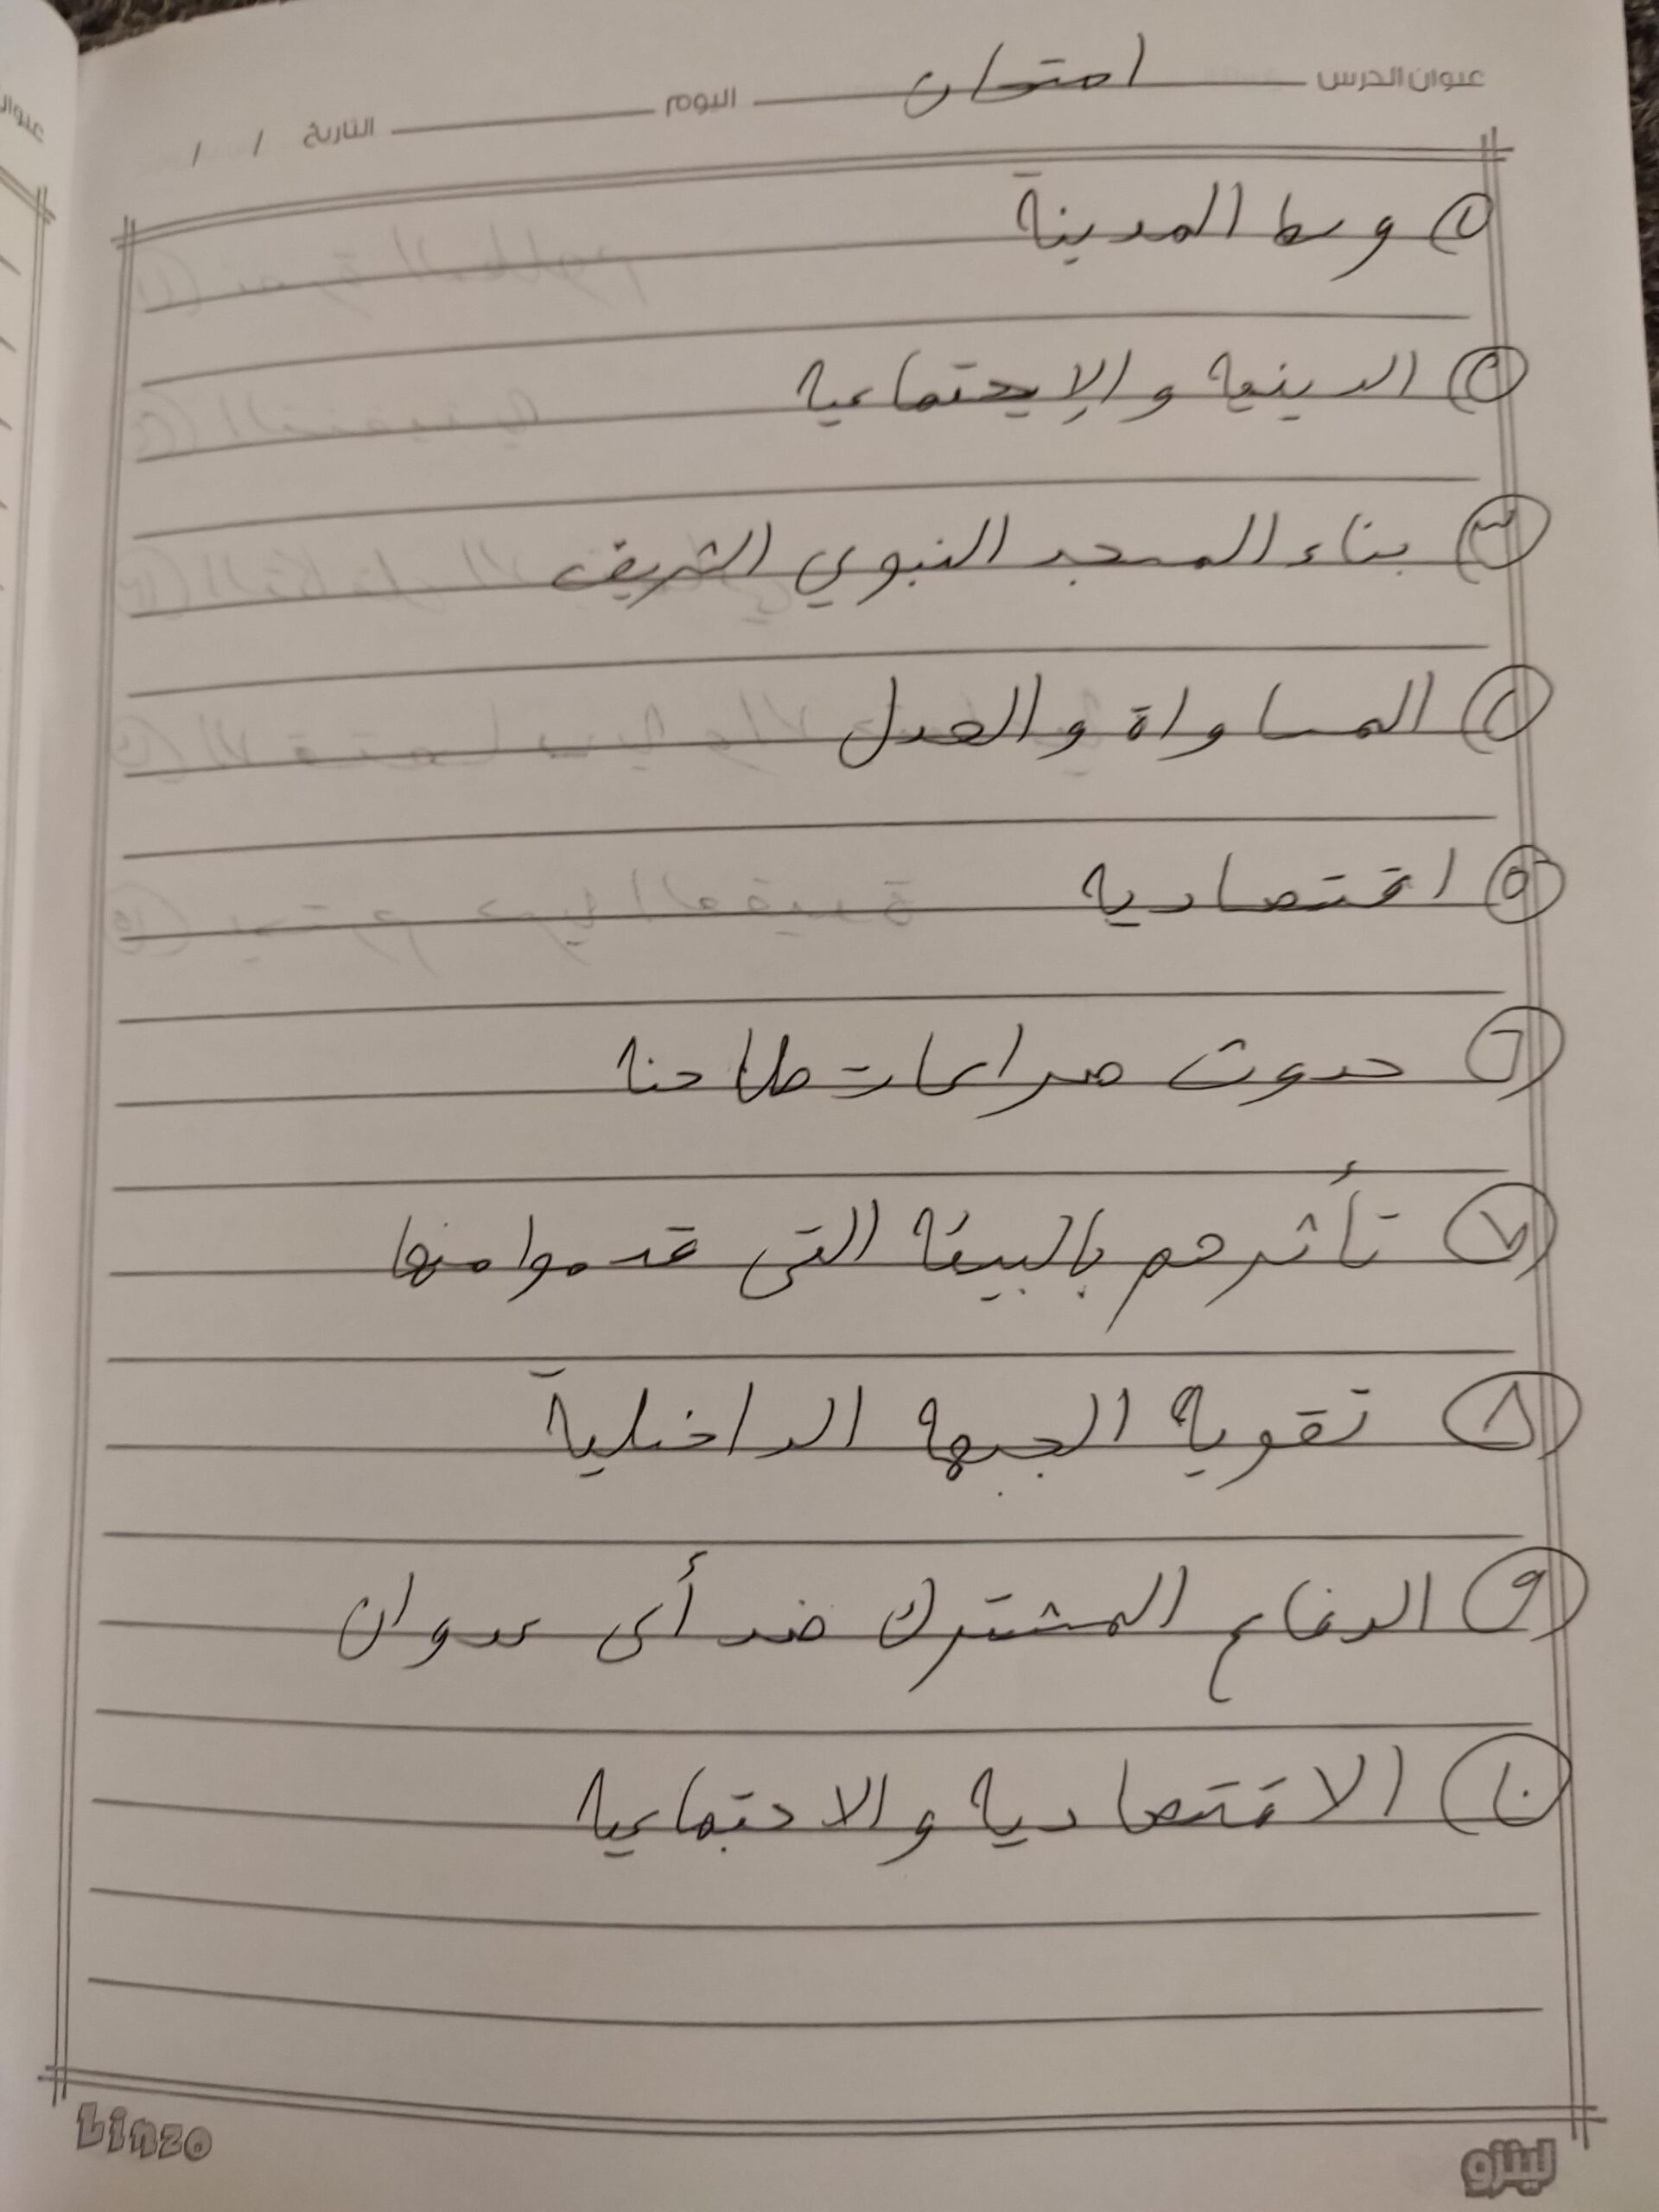 عنوان الدرس امتحان اليوم التاريخ / /
١ وسط المدينة
٢ الدينية والإجتماعية
٣ بناء المسجد النبوي الشريف
٤ المساواة والعدل
٥ اقتصادية
٦ حدوث صراعات طاحنه
٧ تأثرهم بالبيئه التى قدموا منها
٨ تقوية الجبهه الداخلية
٩ الدفاع المشترك ضد أى عدوان
١٠ الاقتصادية والاجتماعية
Linzo لينزو